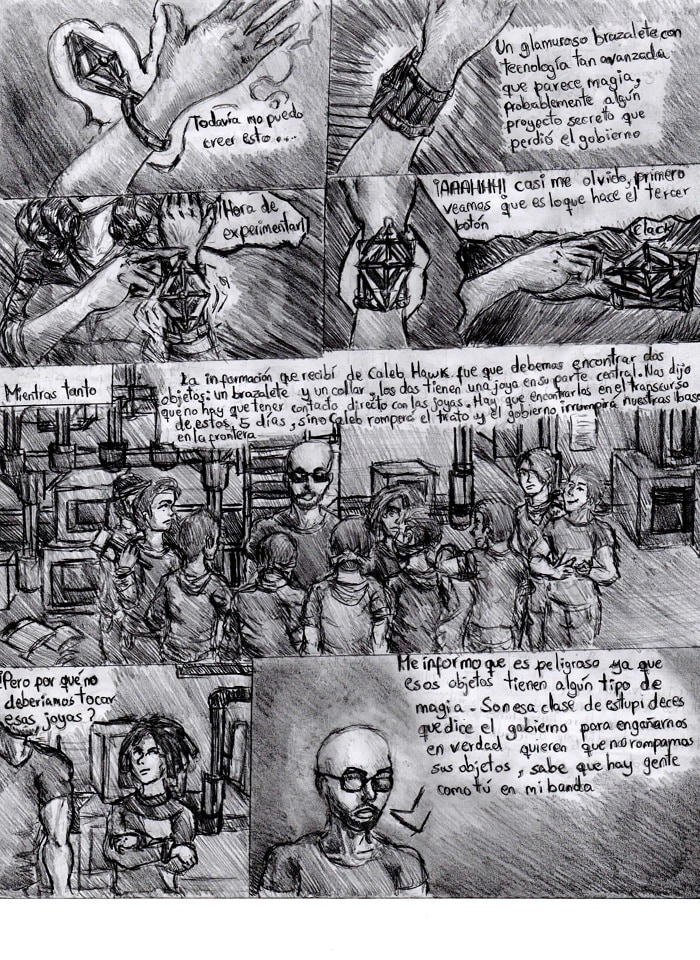 Todavía no puedo
creer esto....
Un glamuroso brazalete con
tecnología tan avanzada
que parece magia,
probablemente algún
proyecto secreto que
perdió el gobierno
¡Hora de
experimentar!
¡AAAHHH! casi me olvido, primero
veamos que es lo que hace el tercer
botón
Clack
Mientras tanto
La información que recibí de Caleb Hawk fue que debemos encontrar dos
objetos: un brazalete y un collar, los dos tienen una joya en su parte central. Nos dijo
que no hay que tener contacto directo con las joyas. Hay que encontrarlos en el transcurso
de estos 5 días, sino Caleb romperá el trato y el gobierno irrumpirá nuestras base
en la frontera
¿Pero por qué no
deberíamos tocar
esas joyas?
Me informo que es peligroso ya que
esos objetos tienen algún tipo de
magia. Son esa clase de estupideces
que dice el gobierno para engañarnos
en verdad quieren que no rompamos
sus objetos, sabe que hay gente
como tú en mi banda